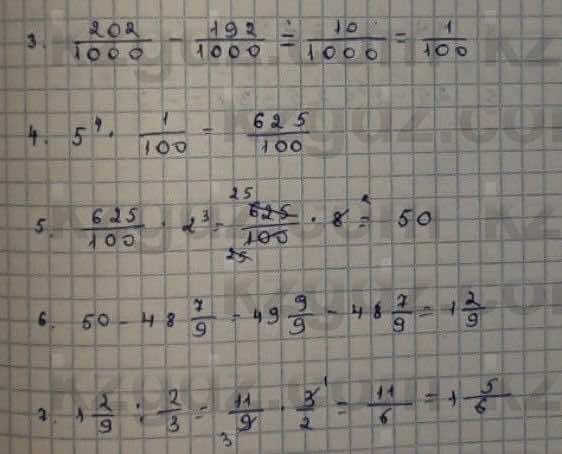 3. 202/1000 - 192/1000 = 10/1000 = 1/100
4. 5⁴ · 1/100 = 625/100
5. 625/100 · 2³ = 625/100 · 8 = 50
6. 50 - 48 7/9 = 49 9/9 - 48 7/9 = 1 2/9
7. 1 2/9 : 2/3 = 11/9 · 3/2 = 11/6 = 1 5/6